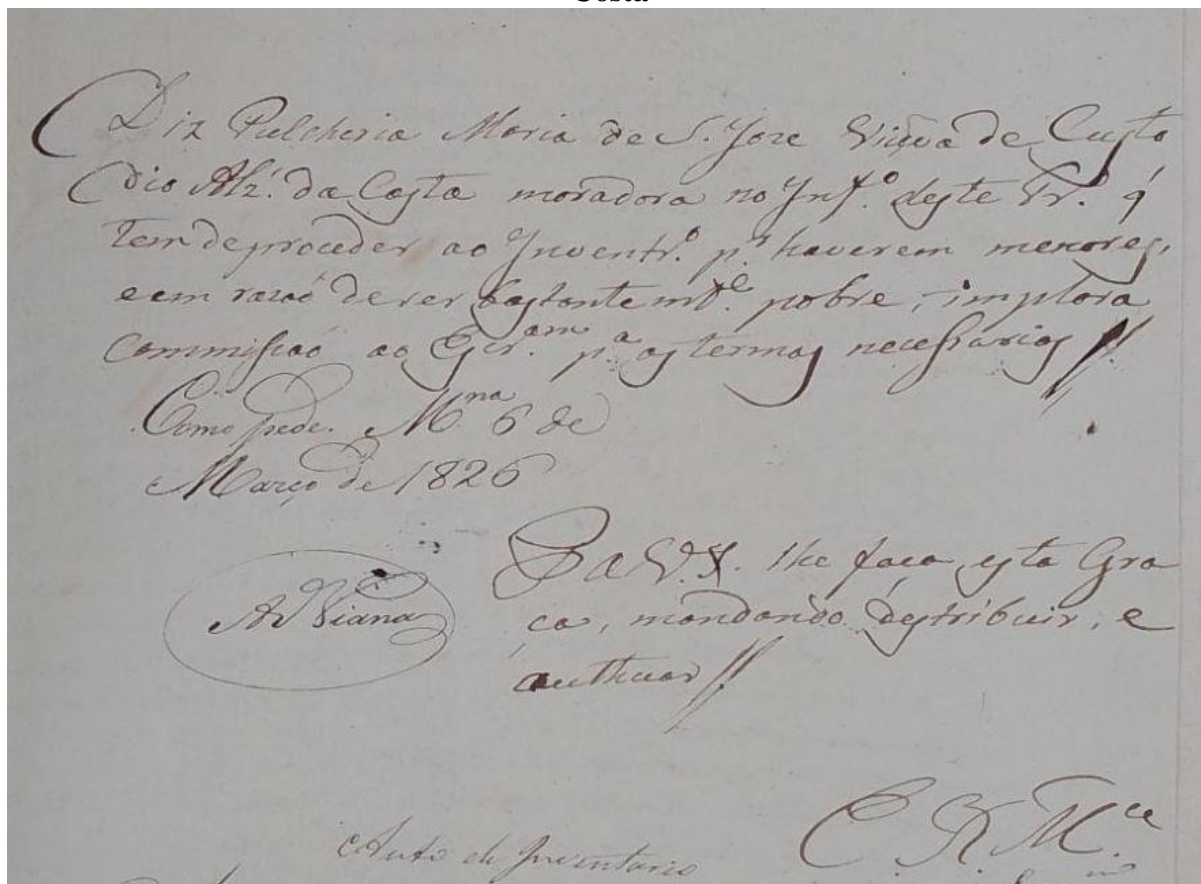 Costa
Diz Pulcheria Maria de S. Joze Viuva de Custo
dio Alz.' da Costa moradora no Inf.º deste Tr.º q'
tem de proceder ao Inventr.º p.r haverem menores,
e em razaõ de ser bastante mt.e pobre, implora
Commissaõ ao Escr.am p.a os termos necessarios //
Como pede. M.na 6 de
Março de 1826
P a V. S. lhe faça esta Gra
ça, mandando destribuir, e
authuar //
Viana
E. R. M.ce
Auto de Inventario